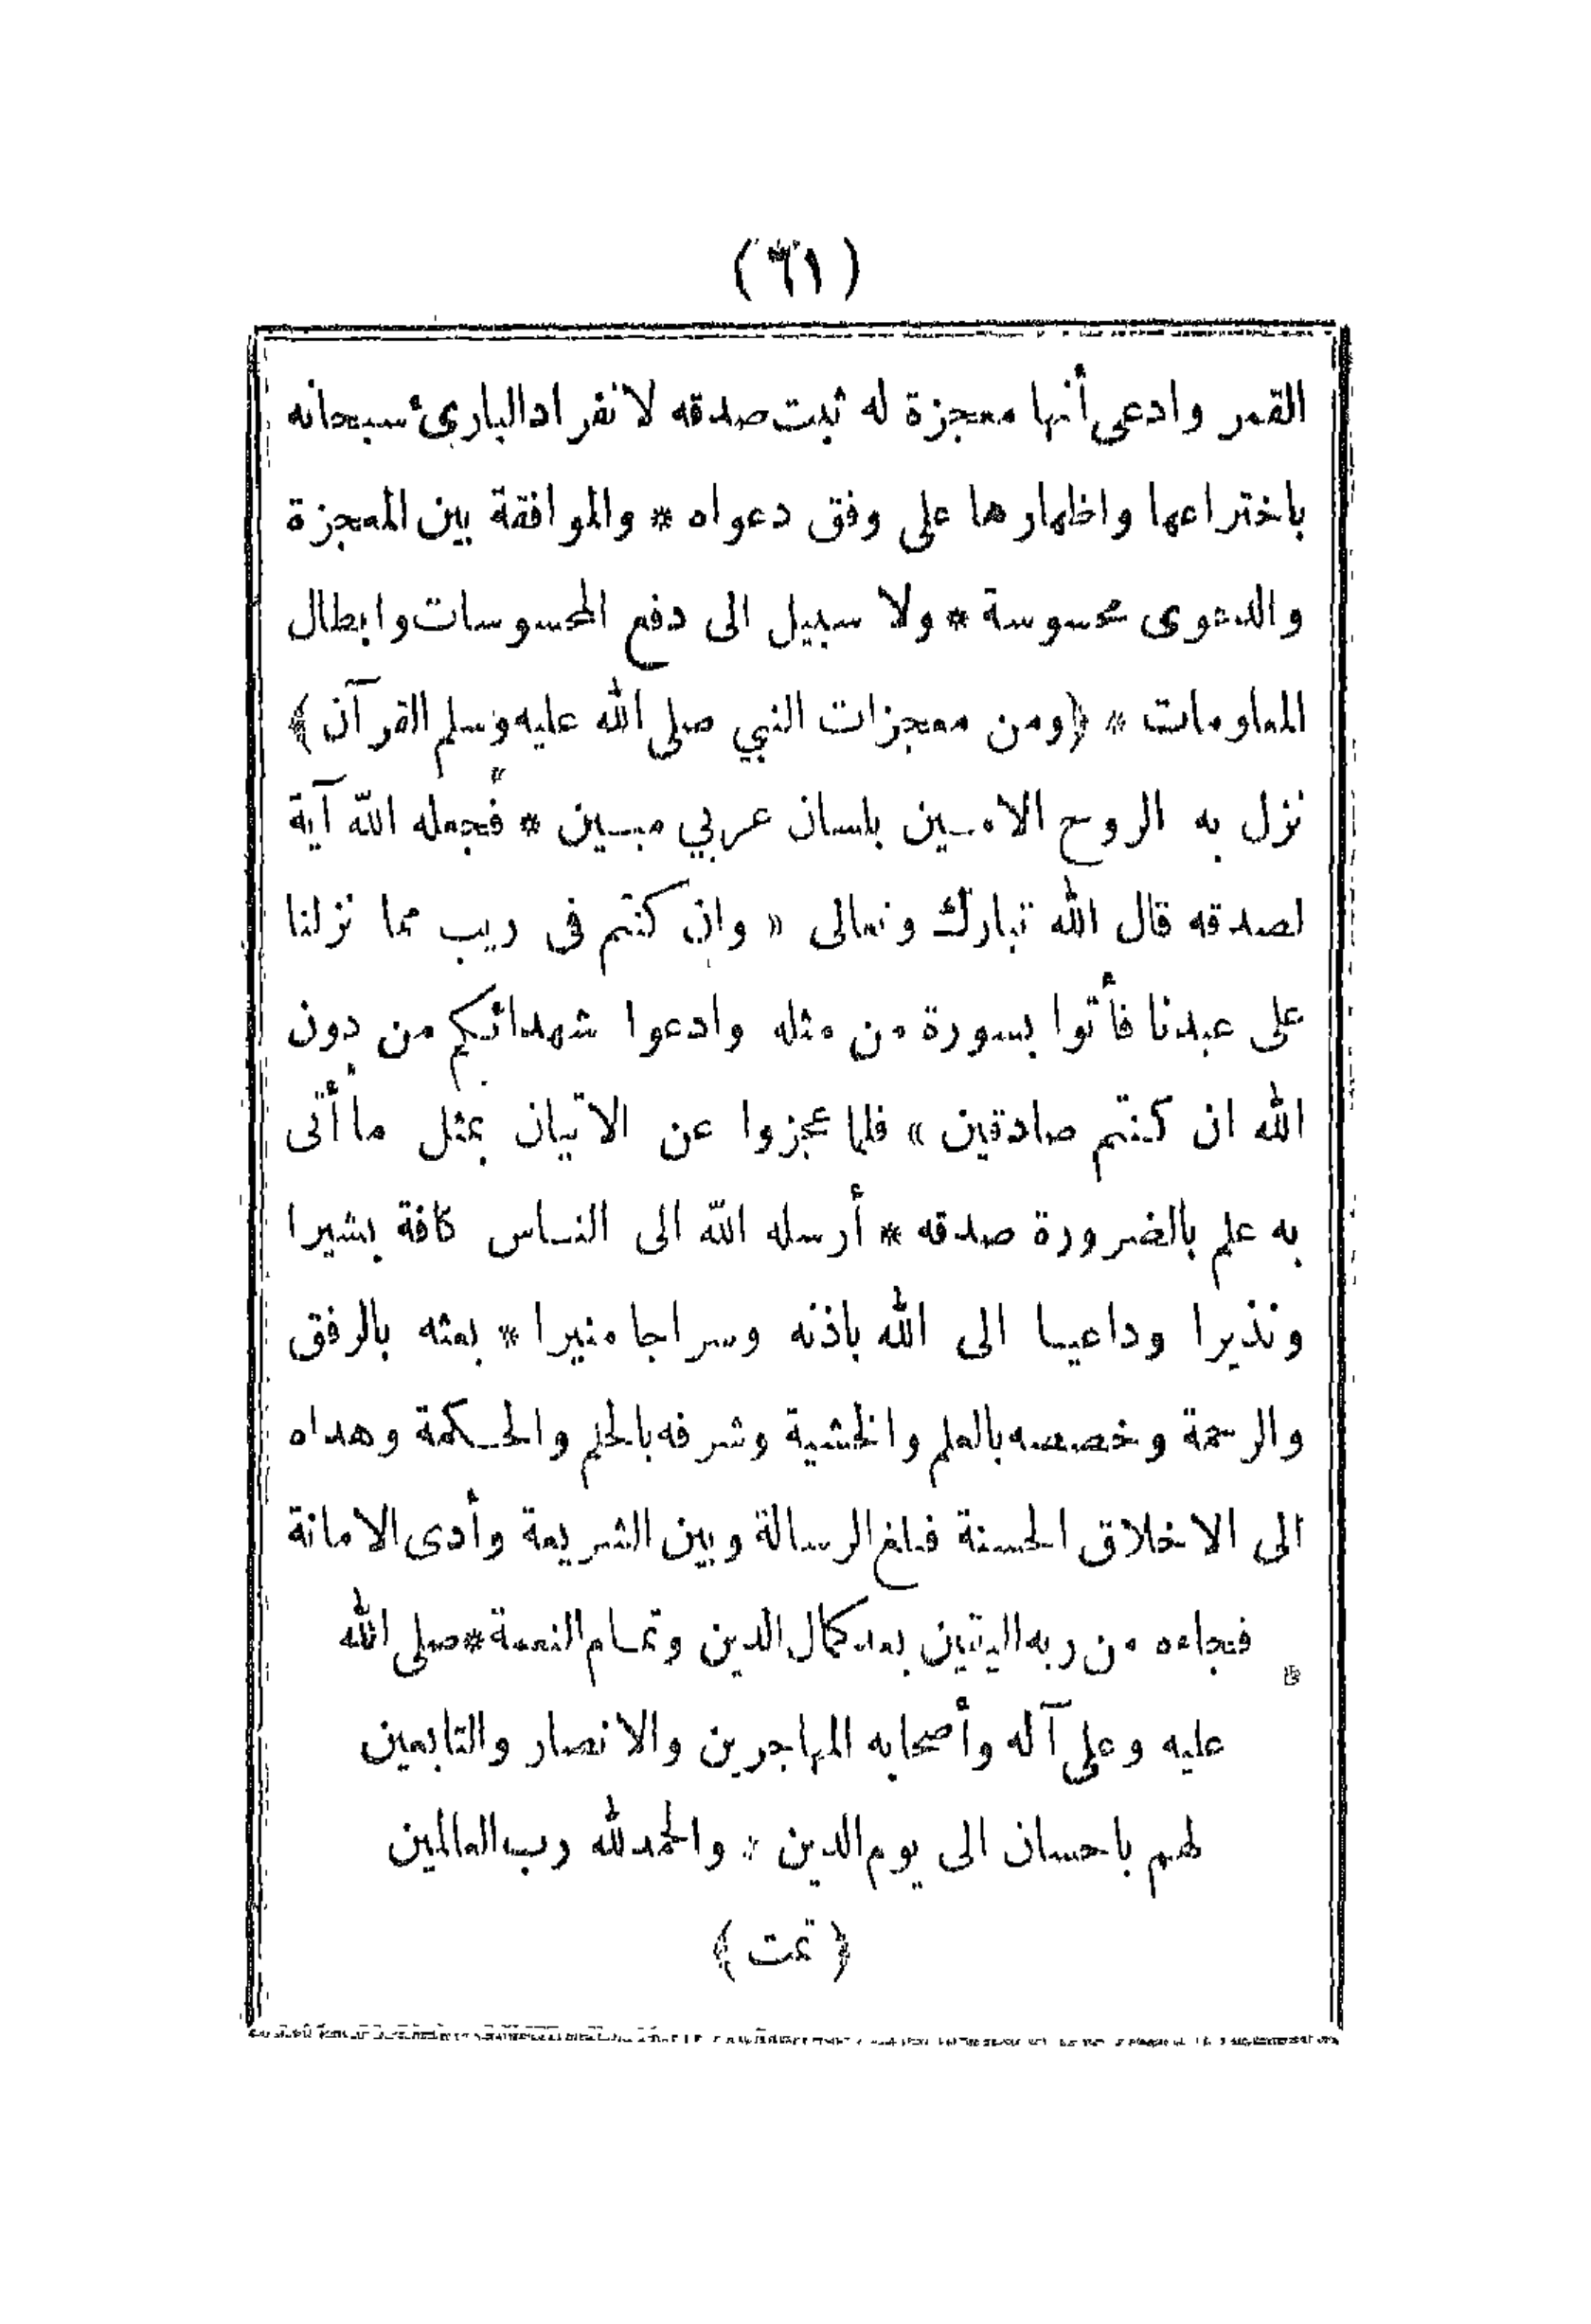 (٦١)
القمر وادعى أنها معجزة له ثبت صدقه لانفراد البارئ سبحانه
باختراعها واظهارها على وفق دعواه * والموافقة بين المعجزة
والدعوى محسوسة * ولا سبيل الى دفع المحسوسات وابطال
المعلومات * ﴿ومن معجزات النبي صلى الله عليه وسلم القرآن﴾
نزل به الروح الامين بلسان عربي مبين * فجعله الله آية
لصدقه قال الله تبارك وتعالى « وان كنتم فى ريب مما نزلنا
على عبدنا فأتوا بسورة من مثله وادعوا شهدائكم من دون
الله ان كنتم صادقين » فلما عجزوا عن الاتيان بمثل ما أتى
به علم بالضرورة صدقه * أرسله الله الى الناس كافة بشيرا
ونذيرا وداعيا الى الله باذنه وسراجا منيرا * بعثه بالرفق
والرحمة وخصصه بالعلم والخشية وشرفه بالحلم والحكمة وهداه
الى الاخلاق الحسنة فبلغ الرسالة وبين الشريعة وأدى الامانة
فجاءه من ربه اليقين بعد كمال الدين وتمام النعمة * صلى الله
عليه وعلى آله وأصحابه المهاجرين والانصار والتابعين
لهم باحسان الى يوم الدين * والحمد لله رب العالمين
﴿تمت﴾